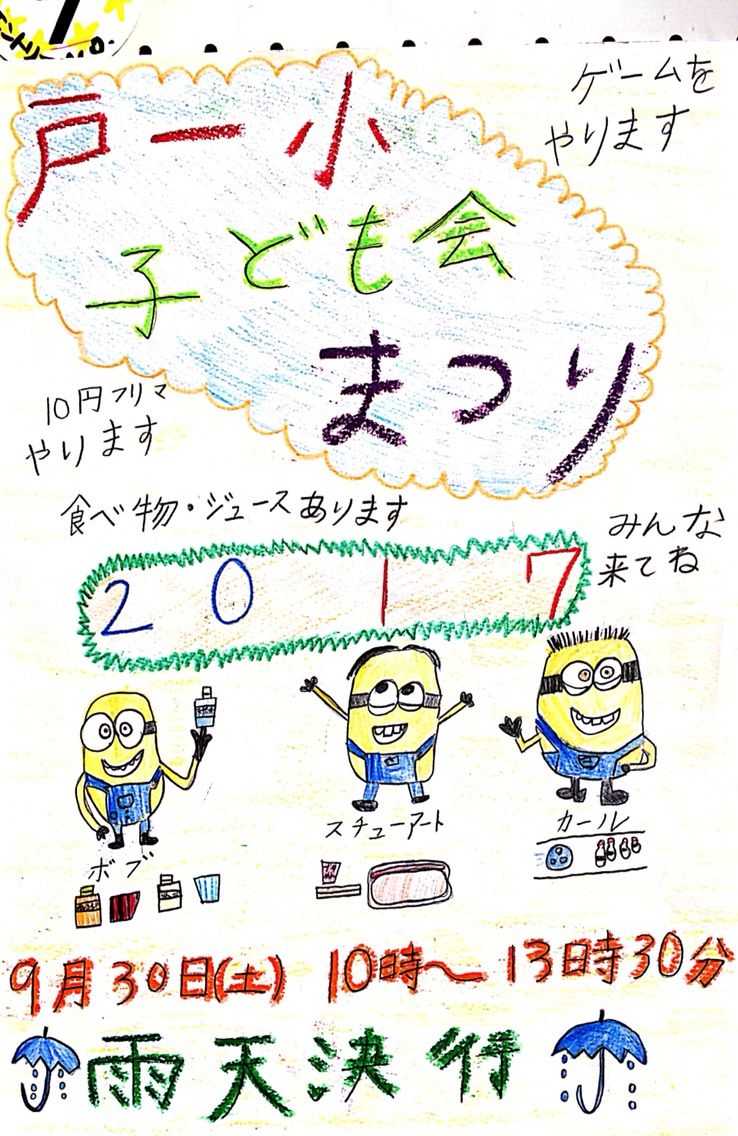 ゲームを
やります
戸一小
子ども会
まつり
10円フリマ
やります
食べ物・ジュースあります
みんな
来てね
2017
ボブ
スチューアート
カール
9月30日(土) 10時〜13時30分
雨天決行